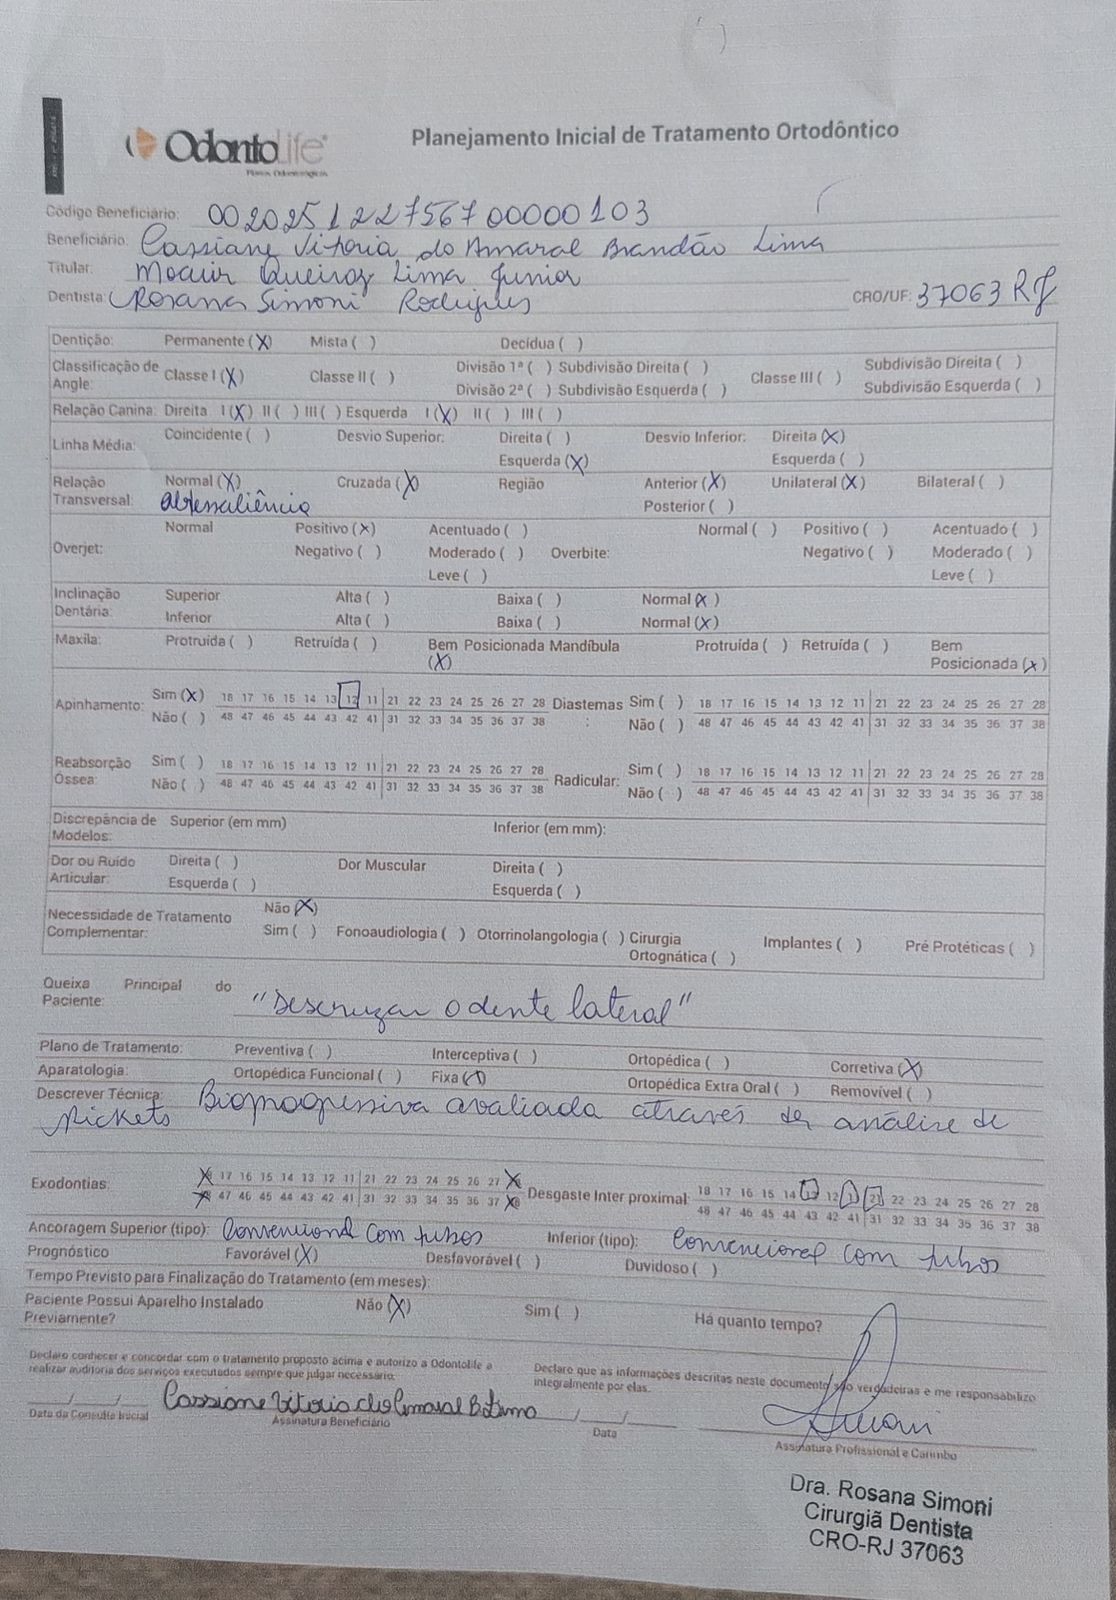 OdontoLife
Planos Odontológicos
Planejamento Inicial de Tratamento Ortodôntico
Código Beneficiário: 00202512275670000010 3
Beneficiário: Cassiane Vitoria do Amaral Brandão Lima
Titular: Moacir Queiroz Lima Junior
Dentista: Rosana Simoni Rodrigues CRO/UF: 37063 RJ
Dentição: Permanente (X) Mista ( ) Decídua ( )
Classificação de Angle: Classe I (X) Classe II ( ) Divisão 1ª ( ) Subdivisão Direita ( ) Classe III ( ) Subdivisão Direita ( )
Divisão 2ª ( ) Subdivisão Esquerda ( ) Subdivisão Esquerda ( )
Relação Canina: Direita I (X) II ( ) III ( ) Esquerda I (X) II ( ) III ( )
Linha Média: Coincidente ( ) Desvio Superior: Direita ( ) Desvio Inferior: Direita (X)
Esquerda (X) Esquerda ( )
Relação Transversal: Normal (X) Cruzada (X) Região Anterior (X) Unilateral (X) Bilateral ( )
Posterior ( )
Overjet: Normal Positivo (X) Acentuado ( ) Normal ( ) Positivo ( ) Acentuado ( )
Negativo ( ) Moderado ( ) Overbite: Negativo ( ) Moderado ( )
Leve ( ) Leve ( )
Inclinação Dentária: Superior Alta ( ) Baixa ( ) Normal (X)
Inferior Alta ( ) Baixa ( ) Normal (X)
Maxila: Protruída ( ) Retruída ( ) Bem Posicionada (X) Mandíbula Protruída ( ) Retruída ( ) Bem Posicionada (X)
Apinhamento: Sim (X) 18 17 16 15 14 13 12 11 21 22 23 24 25 26 27 28 Diastemas: Sim ( ) 18 17 16 15 14 13 12 11 21 22 23 24 25 26 27 28
Não ( ) 48 47 46 45 44 43 42 41 31 32 33 34 35 36 37 38 Não ( ) 48 47 46 45 44 43 42 41 31 32 33 34 35 36 37 38
Reabsorção Óssea: Sim ( ) 18 17 16 15 14 13 12 11 21 22 23 24 25 26 27 28 Radicular: Sim ( ) 18 17 16 15 14 13 12 11 21 22 23 24 25 26 27 28
Não ( ) 48 47 46 45 44 43 42 41 31 32 33 34 35 36 37 38 Não ( ) 48 47 46 45 44 43 42 41 31 32 33 34 35 36 37 38
Discrepância de Modelos: Superior (em mm) Inferior (em mm):
Dor ou Ruído Articular: Direita ( ) Dor Muscular Direita ( )
Esquerda ( ) Esquerda ( )
Necessidade de Tratamento Complementar: Não (X)
Sim ( ) Fonoaudiologia ( ) Otorrinolangologia ( ) Cirurgia Ortognática ( ) Implantes ( ) Pré Protéticas ( )
Queixa Principal do Paciente: "Descruzar o dente lateral"
Plano de Tratamento: Preventiva ( ) Interceptiva ( ) Ortopédica ( ) Corretiva (X)
Aparatologia: Ortopédica Funcional ( ) Fixa (X) Ortopédica Extra Oral ( ) Removível ( )
Descrever Técnica: Bioprogressiva avaliada através de análise de
Rickets
Exodontias: 17 16 15 14 13 12 11 21 22 23 24 25 26 27 Desgaste Inter proximal: 18 17 16 15 14 13 12 11 21 22 23 24 25 26 27 28
47 46 45 44 43 42 41 31 32 33 34 35 36 37 48 47 46 45 44 43 42 41 31 32 33 34 35 36 37 38
Ancoragem Superior (tipo): Convencional com tubos Inferior (tipo): Convencional com tubos
Prognóstico Favorável (X) Desfavorável ( ) Duvidoso ( )
Tempo Previsto para Finalização do Tratamento (em meses):
Paciente Possui Aparelho Instalado Previamente? Não (X) Sim ( ) Há quanto tempo?
Declaro conhecer e concordar com o tratamento proposto acima e autorizo a Odontolife a
realizar auditoria dos serviços executados sempre que julgar necessário.
Declaro que as informações descritas neste documento são verdadeiras e me responsabilizo
integralmente por elas.
__/__/__ Cassiane Vitoria do Amaral B. Lima __/__/__
Data da Consulta Inicial Assinatura Beneficiário Data Assinatura Profissional e Carimbo
Dra. Rosana Simoni
Cirurgiã Dentista
CRO-RJ 37063